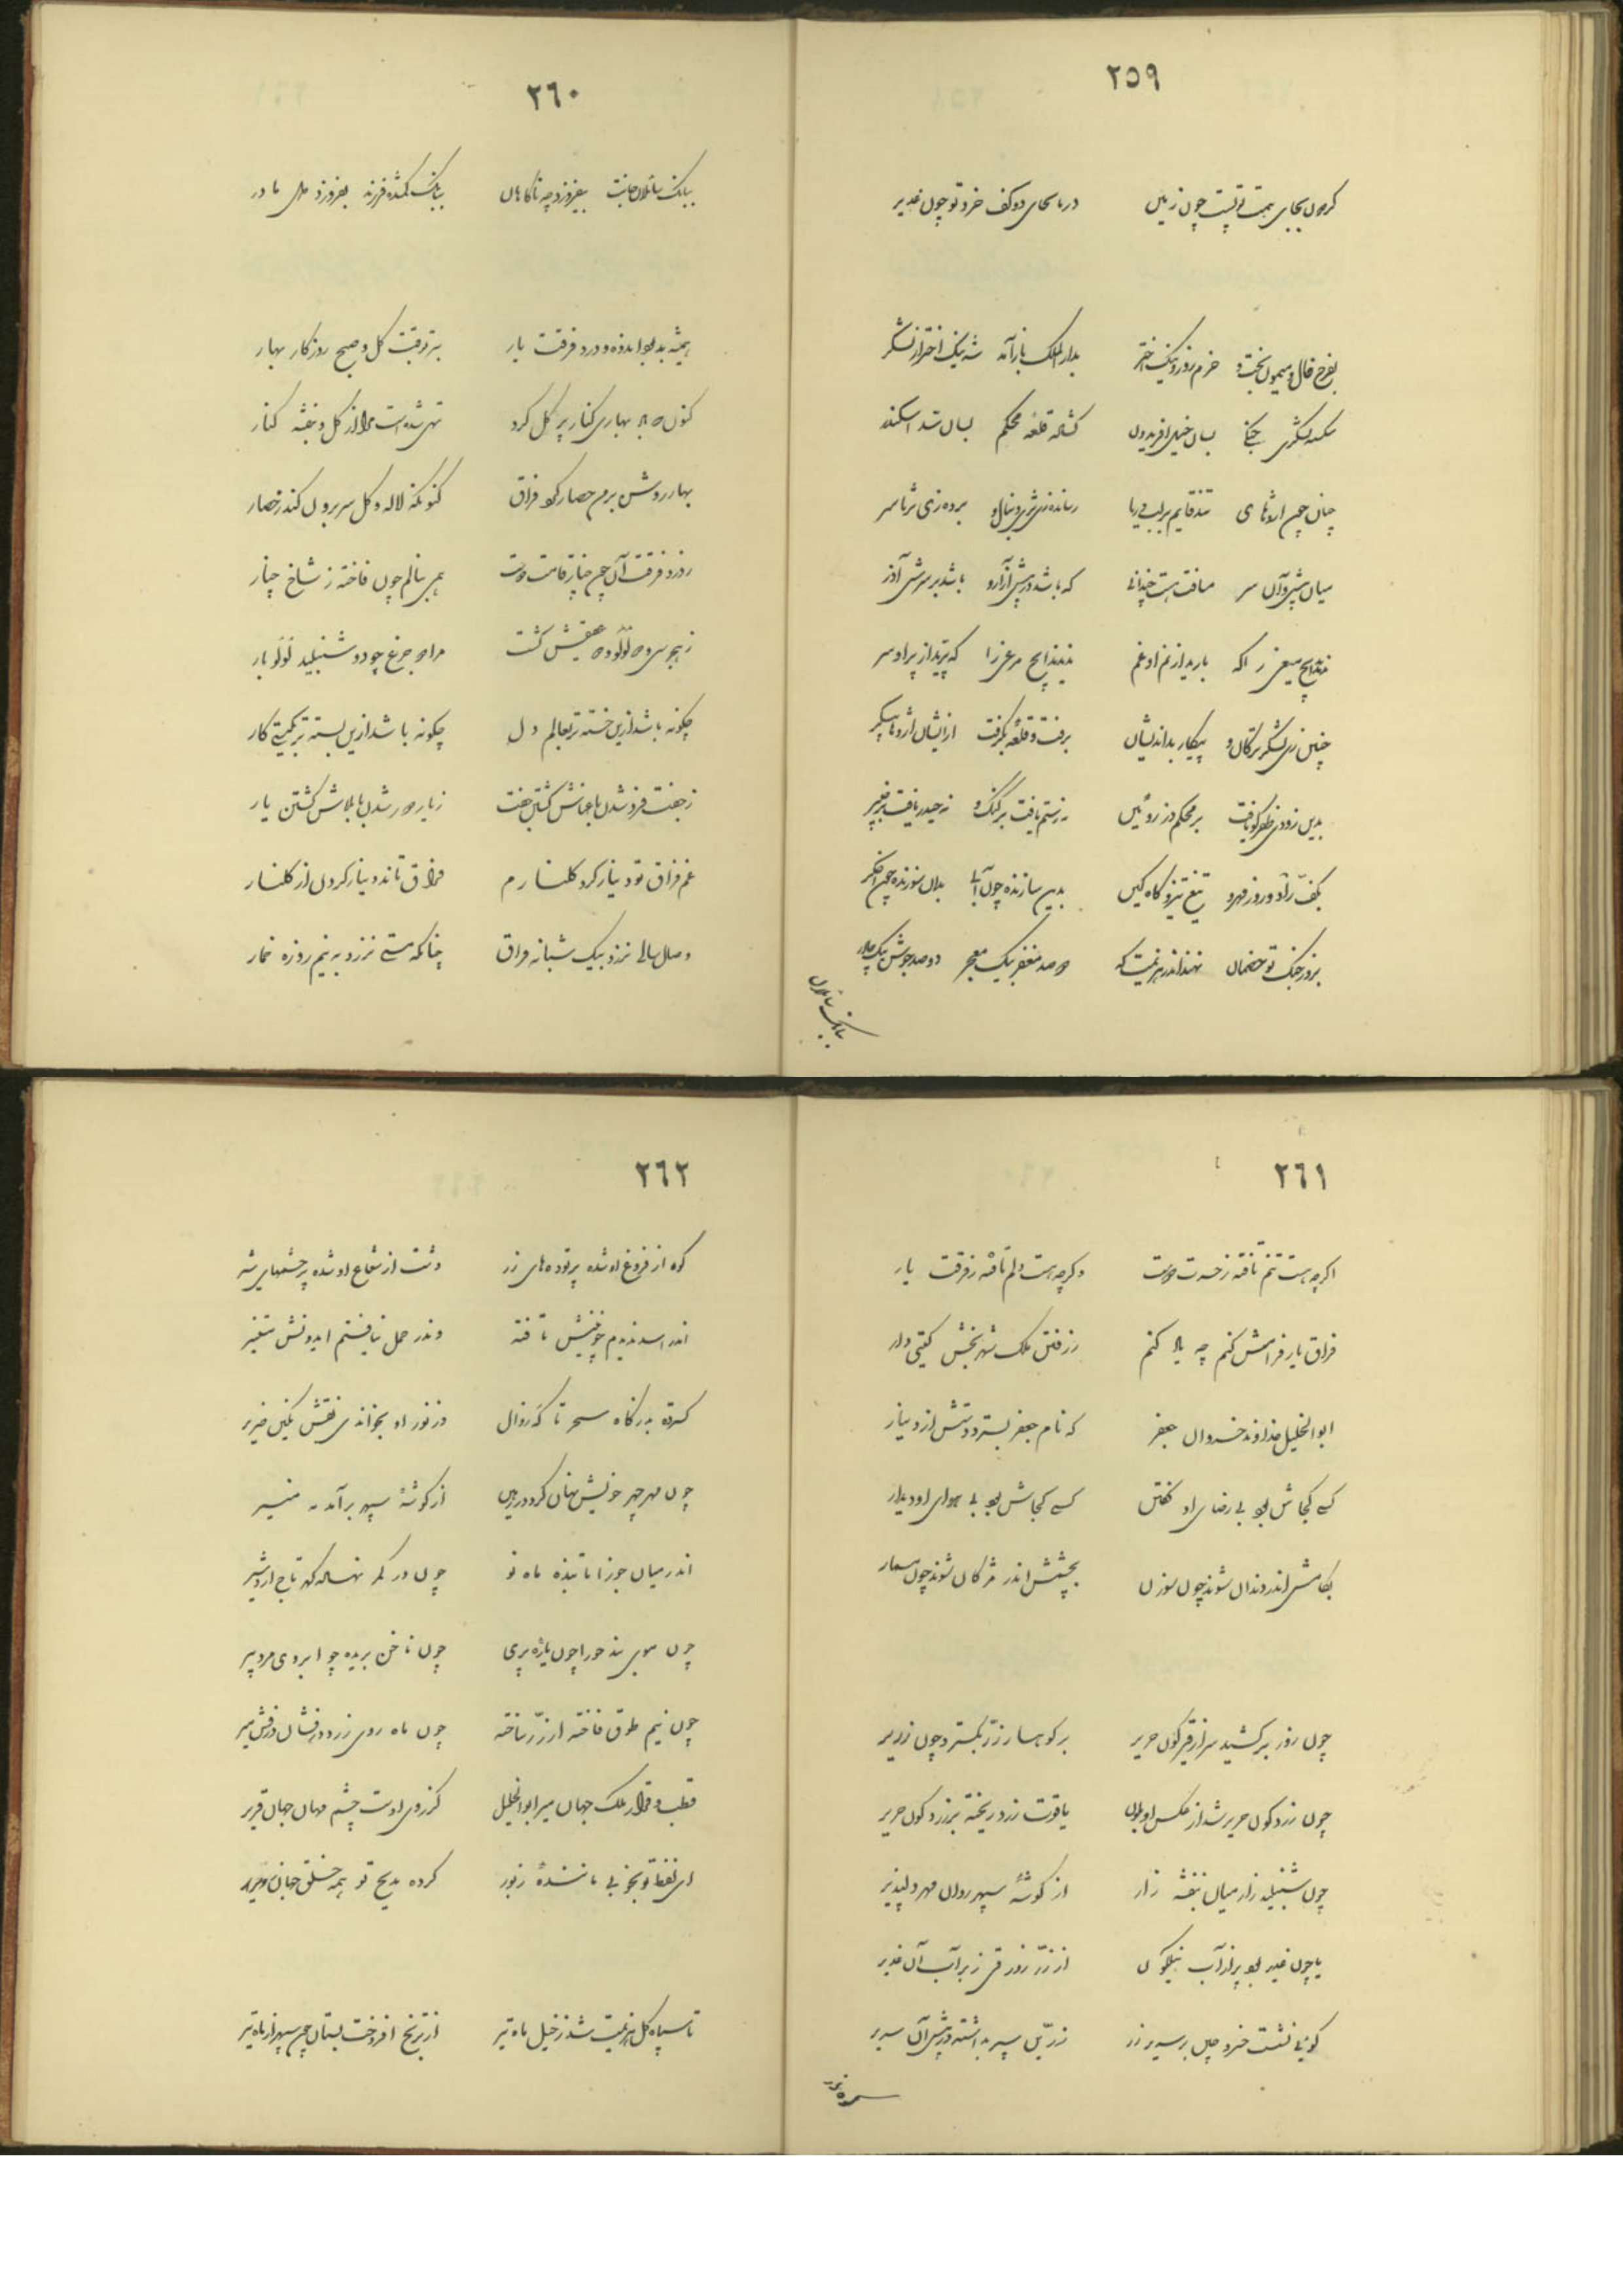 ۲۵۹
گردون بجای همت تو پست چون زمین دریا بجای دو کف خرد تو چون غدیر
بفرخ فال و میمون بخت و خرم روز و نیک اختر بدار الملک باز آمد شه نیک اختر از لشکر
شکسته لشکری جنگی بسان خیل افریدون گشاده قلعه محکم بسان سد اسکندر
میان شیر و آن سر مسافت هست چندانی که باشد در پیش آزار و باشد بر سرش آذر
نبیند هیچ مرغی را که پرید از بر او سر
چنین زی لشکر ترکان و پیکار بداندیشان برفت و قلعه بگرفت از ایشان اژدها پیکر
بدین زودی ظفر کو یافت بر محکم دز روئین نه رستم یافت بر گنگ و نه حیدر یافت بر خیبر
بکف راد و روز مهر و تیغ تیز و گاه کین بدین سازنده چون آب بدان سوزنده چون اخگر
بروز جنگ تو خصمان نهند اندر هزیمت گه دو صد مغفر بیک معجر دو صد جوشن بیک چادر
ببانگ سائلان
۲۶۰
ببانگ سائلان جانت بیفروزد چه ناگاهان ببانگ گمشده فرزند بفروزد دل مادر
همیشه بد بود اندوه و درد فرقت یار بتر بوقت گل و صبح روزگار بهار
کنون که ابر بهاری کنار پر گل کرد تهی شده است مرا از گل و بنفشه کنار
بهار رویش بر من حصار کرد فراق کنونکه لاله و گل سر برون کند ز حصار
ز درد فرقت آن چون چنار قامت دوست همی بنالم چون فاخته ز شاخ چنار
ز هجر سی و دو لؤلؤ دو عقیقش گشت مرا دو جزع چو دو شنبلید لؤلؤ بار
چگونه باشد ازین خسته تر بعالم دل چگونه باشد ازین بسته تر بگیتی کار
ز جفت فرد شدن با عناش گشتن جفت ز یار دور شدن با بلاش گشتن یار
غم فراق تو دینار کرد گلنارم فراق تاند دینار کردن از گلنار
وصال سالی نرزد بیک شبانه فراق چنانکه مستی نرزد به نیم روزه خمار
۲۶۱
اگر چه هست تنم تافته ز حسرت دوست وگر چه هست دلم تافته ز فرقت یار
فراق یار فرامش کنم چه یاد کنم ز رفتن ملک شهر بخش گیتی دار
ابوالخلیل خداوند خسروان جعفر که نام جعفر بسترد دستش از دینار
کسی کجاش بود بی رضای او گفتن کسی کجاش بود بی هوای او دیدار
بکامش اندر دندان شوند چون سوزن بچشمش اندر مژگان شوند چون مسمار
چون روز بر کشید سر از قیرگون حریر بر کوهسار زر بگسترد چون زریر
چون زردگون حریر شد از عکس او بلون یاقوت زرد ریخته بر زردگون حریر
چون شنبلید زار میان بنفشه زار از گوشه سپهر روان مهر دلپذیر
یا چون غدیر بود پر از آب نیلگون از زر زورقی زبر آب آن غدیر
گوئی نشست خسرو چین بر سریر زر زرین سپر بداشته در پیش آن سریر
۲۶۲
کوه از فروغ او شده پر توده های زر دشت از شعاع او شده پر چشمهای شیر
اندر اسد ندیدم چونینش تافته وندر حمل نیافتم ایدونش مستنیر
گسترده بدرگاه سحر تا گه زوال وز نور او بخواندی نقش نگین ضریر
چون مهر چهر خویش نهان کرد در زمین از گوشه سپهر برآمد مه منیر
اندر میان جوزا تابنده ماه نو چون در کمر نهاده گهر تاج اردشیر
چون ناخن بریده چو ابروی مرد پیر
چون نیم طوق فاخته از زر ساخته چون ماه روی زرد درفشان درفش میر
قطب وقار ملک جهان میر ابوالخلیل کز روی اوست چشم مهان جهان قریر
ای لفظ تو بخوبی ماننده زبور کرده مدیح تو همه خلق جهان
تا سپاه گل هزیمت شد ز خیل ماه تیر از ترنج افروخت بستان چون سپهر از ماه تیر